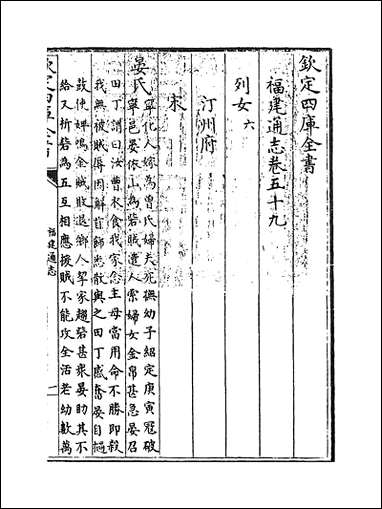 欽定四庫全書
福建通志卷五十九
列女六
汀州府
宋
晏氏寧化人嫁為曽氏婦夫死撫幼子紹定庚寅冦破
寧邑晏依山為砦賊遣人索婦女金帛甚急晏召
田丁謂曰汝曹衣食我家念主母當用命不勝即殺
我無被賊辱因解首飾悉散與之田丁感奮晏自搥
鼓使婢鳴金賊敗退鄉人挈家趨砦甚衆晏助其不
給又析砦為五互相應援賊不能攻全活老幼數萬
欽定四庫全書
福建通志
一